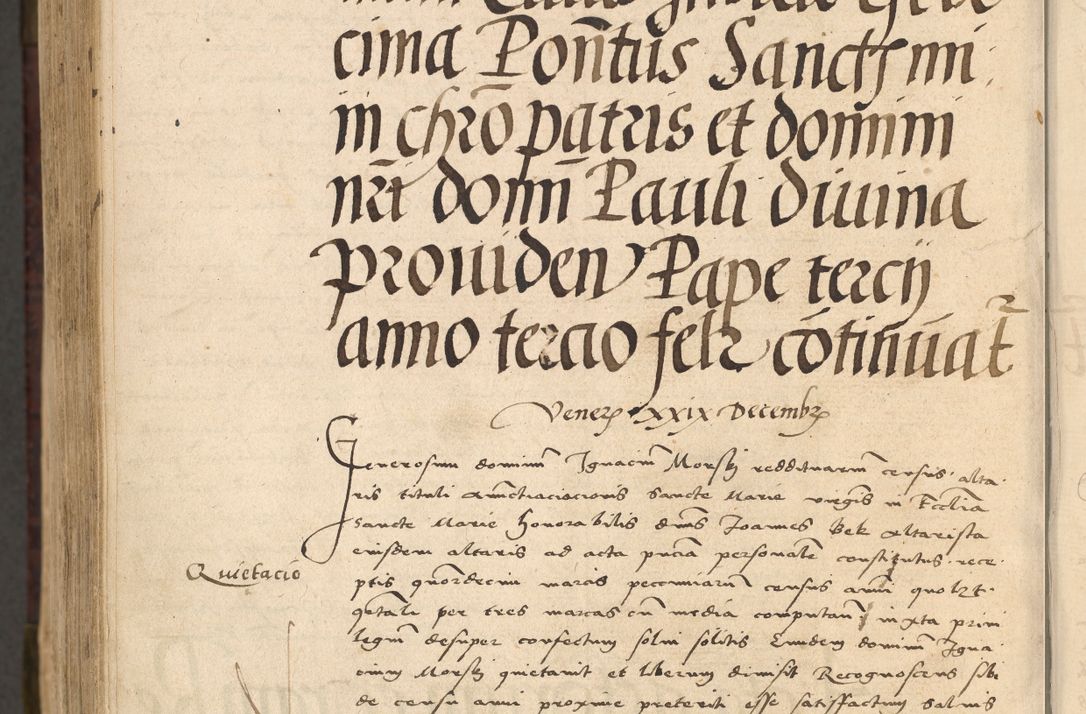 cima Pontus Sanctissmi
in chro patris et domini
nri domn Pauli diuina
prouiden Pape tercij
anno tercio felr continuat
Vener xxix Decembr
Generosum dominum Ignacium Morsky reddituarium census alta
ris tituli Anunctiacionis Sancte Marie virginis in Ecclia
Sancte Marie honorabilis dnus Joannes Bek altarista
eiusdem altaris ad acta pncia personale constitutus rece
Quietacio
ptis quordecim marcis pecuniarum census anni quolzt
qrtali per tres marcas cum media computan iuxta priui
legium desuper confectum solui solitis Eundem dominum Igna
cium Morsky quietauit et liberum dimisit Recognoscens sibi
de censu anni proxime preteriti esse satisfactum saluis